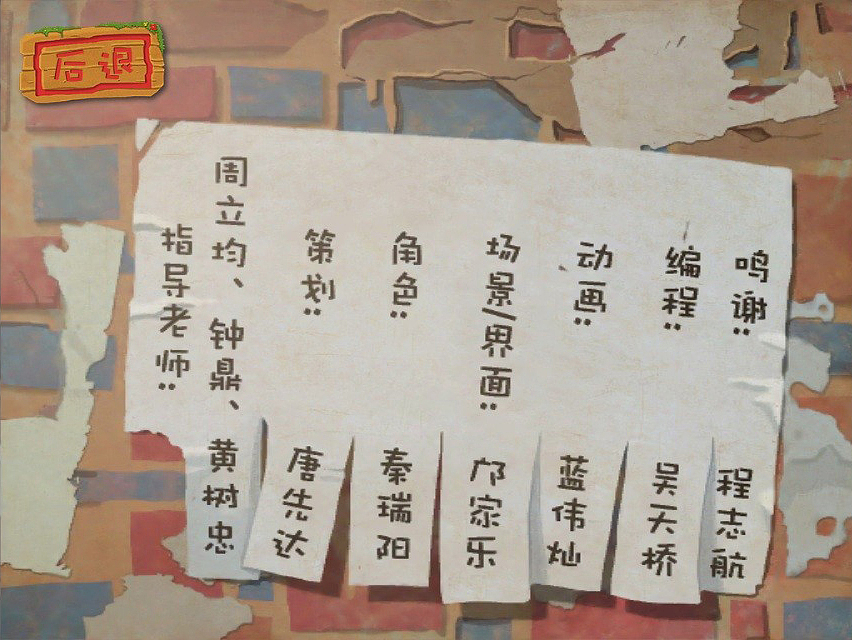 后退
指导老师:
周立均、钟鼎、黄树忠
策划:唐先达
角色:秦瑞阳
场景/界面:邝家乐
动画:蓝伟灿
编程:吴天桥
鸣谢:程志航